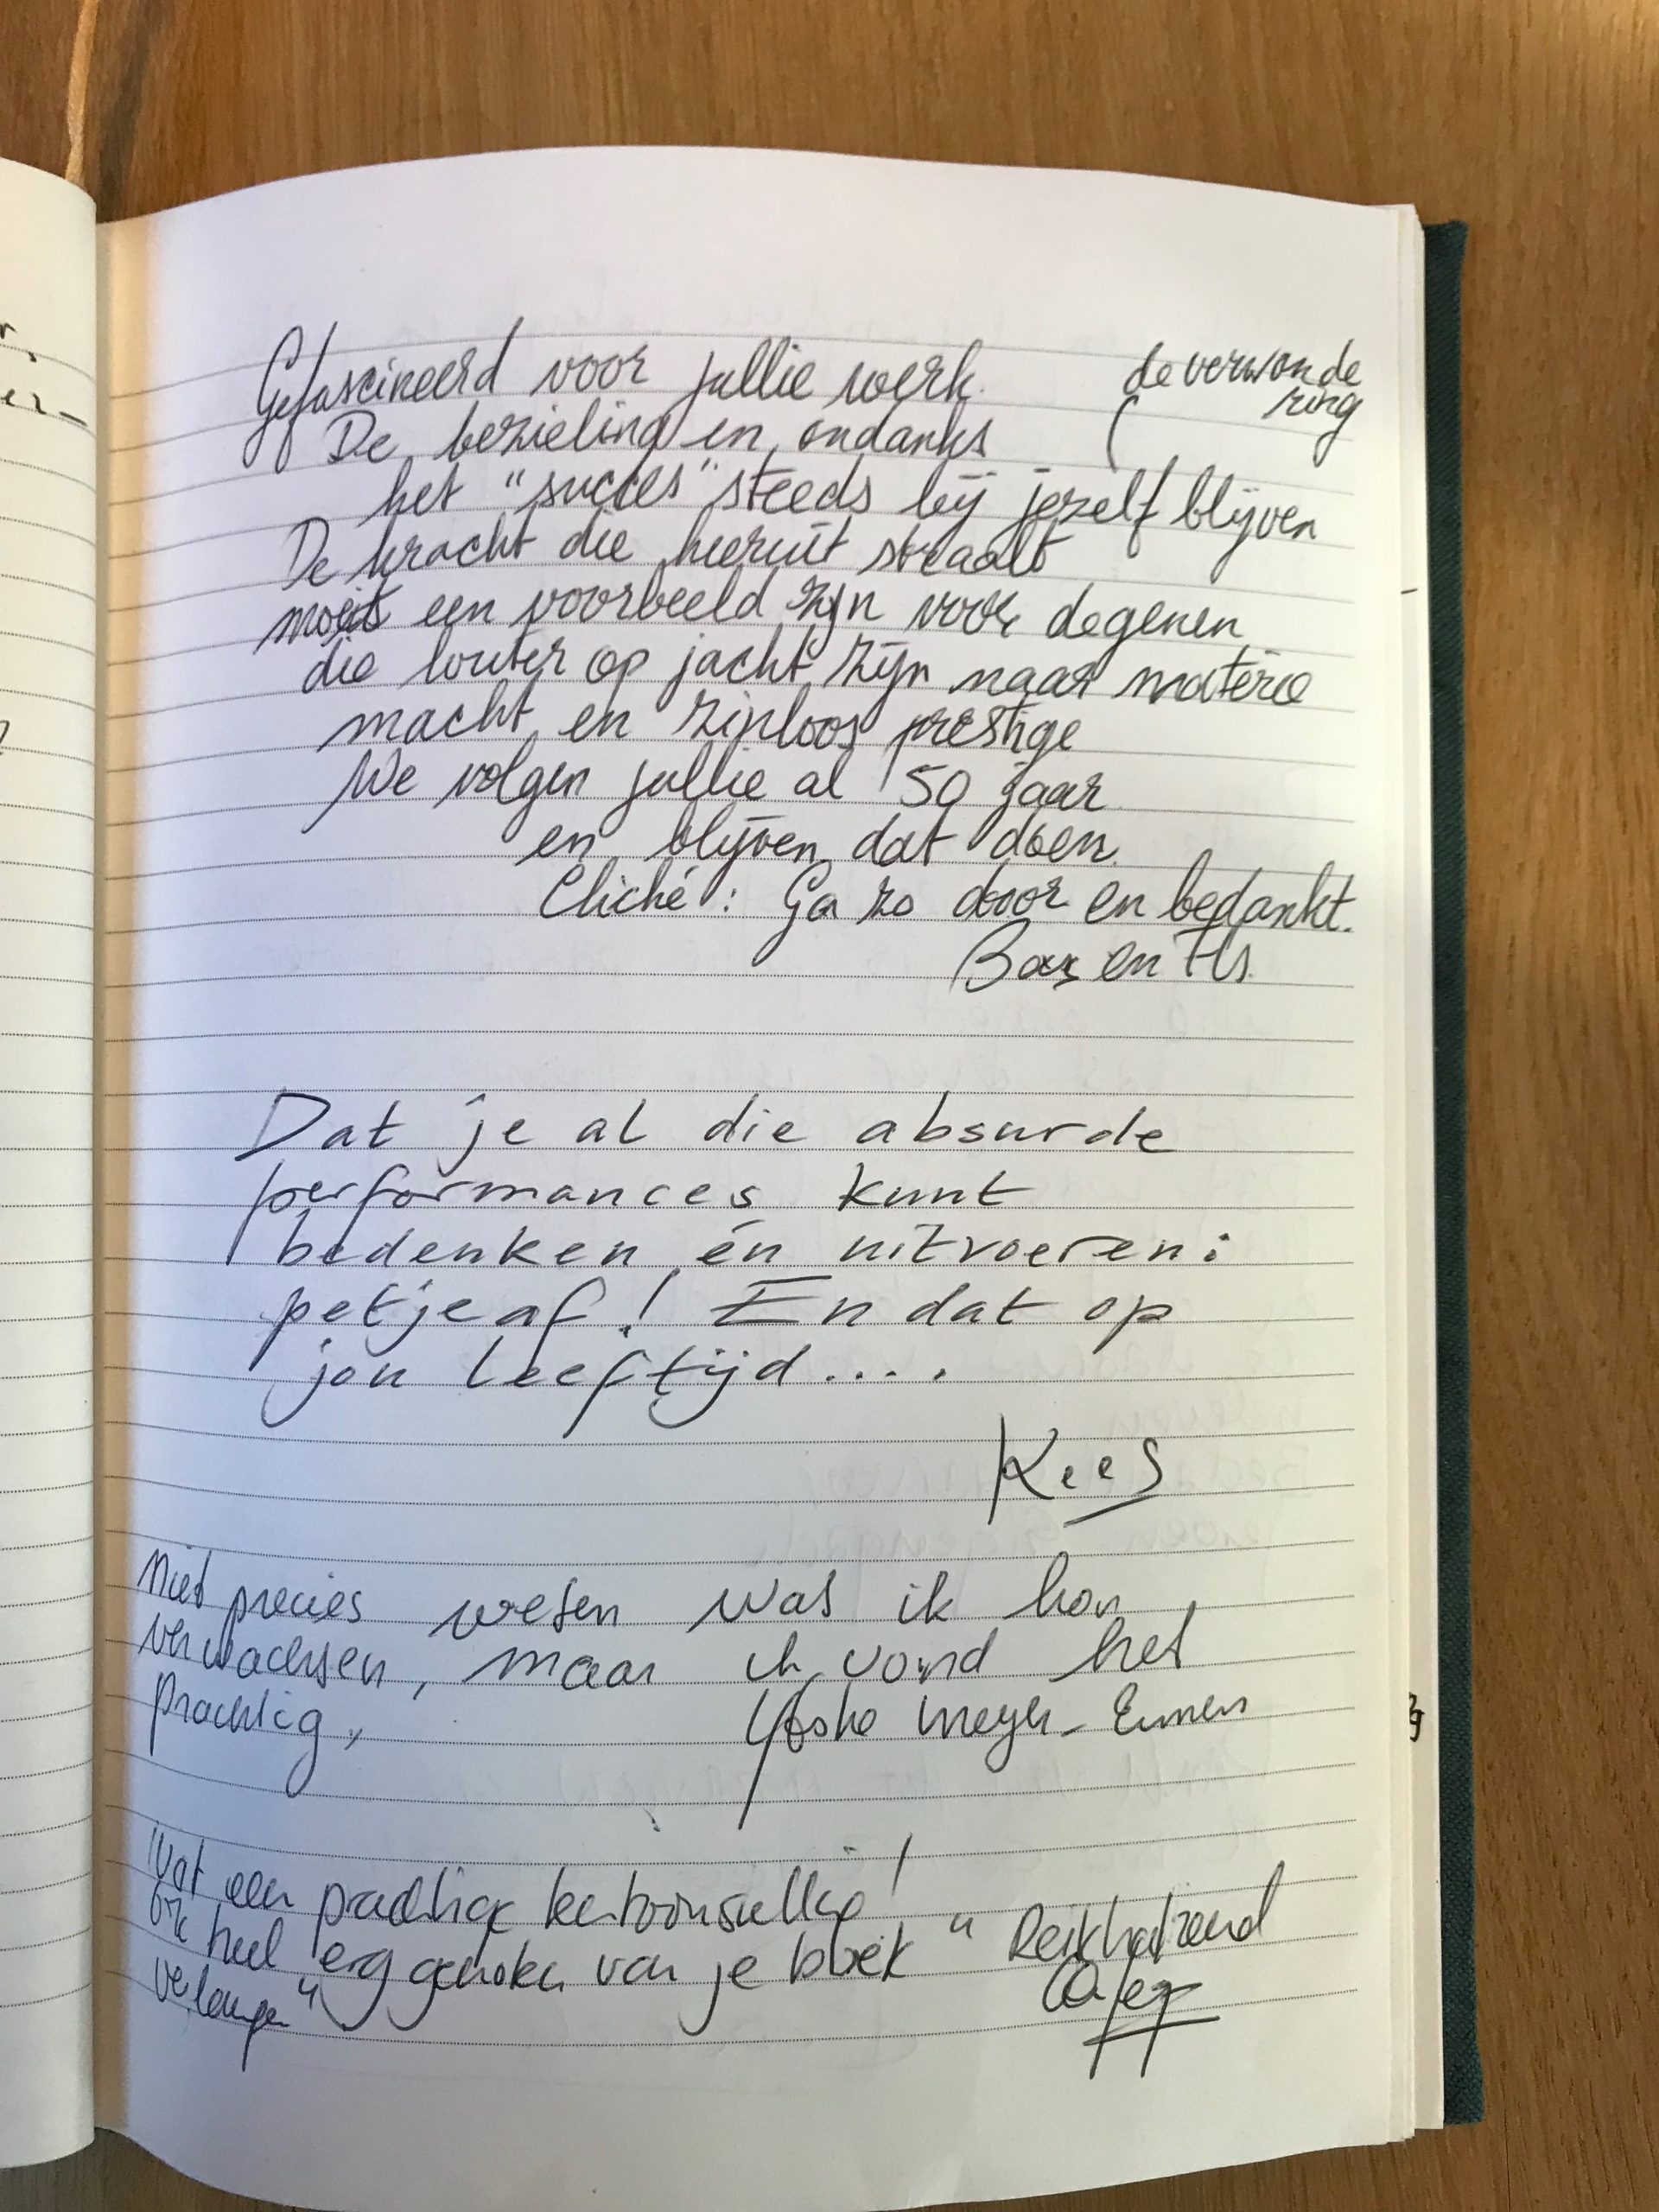 Gefascineerd voor jullie werk.
de verwonde
ring
De bezieling en, ondanks
het "succes" steeds bij jezelf blijven
De kracht die hieruit straalt
moet een voorbeeld zijn voor degenen
die louter op jacht zijn naar materie
macht en zinloos prestige
We volgen jullie al 50 jaar
en blijven dat doen.
Cliché: Ga zo door en bedankt.
en
Dat je al die absurde
performances kunt
bedenken én uitvoeren:
petje af! En dat op
jou leeftijd....
Kees
Niet precies weten wat ik kon
verwachten, maar ik vond het
prachtig,
Meyer-
Wat een prachtige tentoonstelling!
Ook heel erg genoten van je boek "Reikhalzend
verlangen"